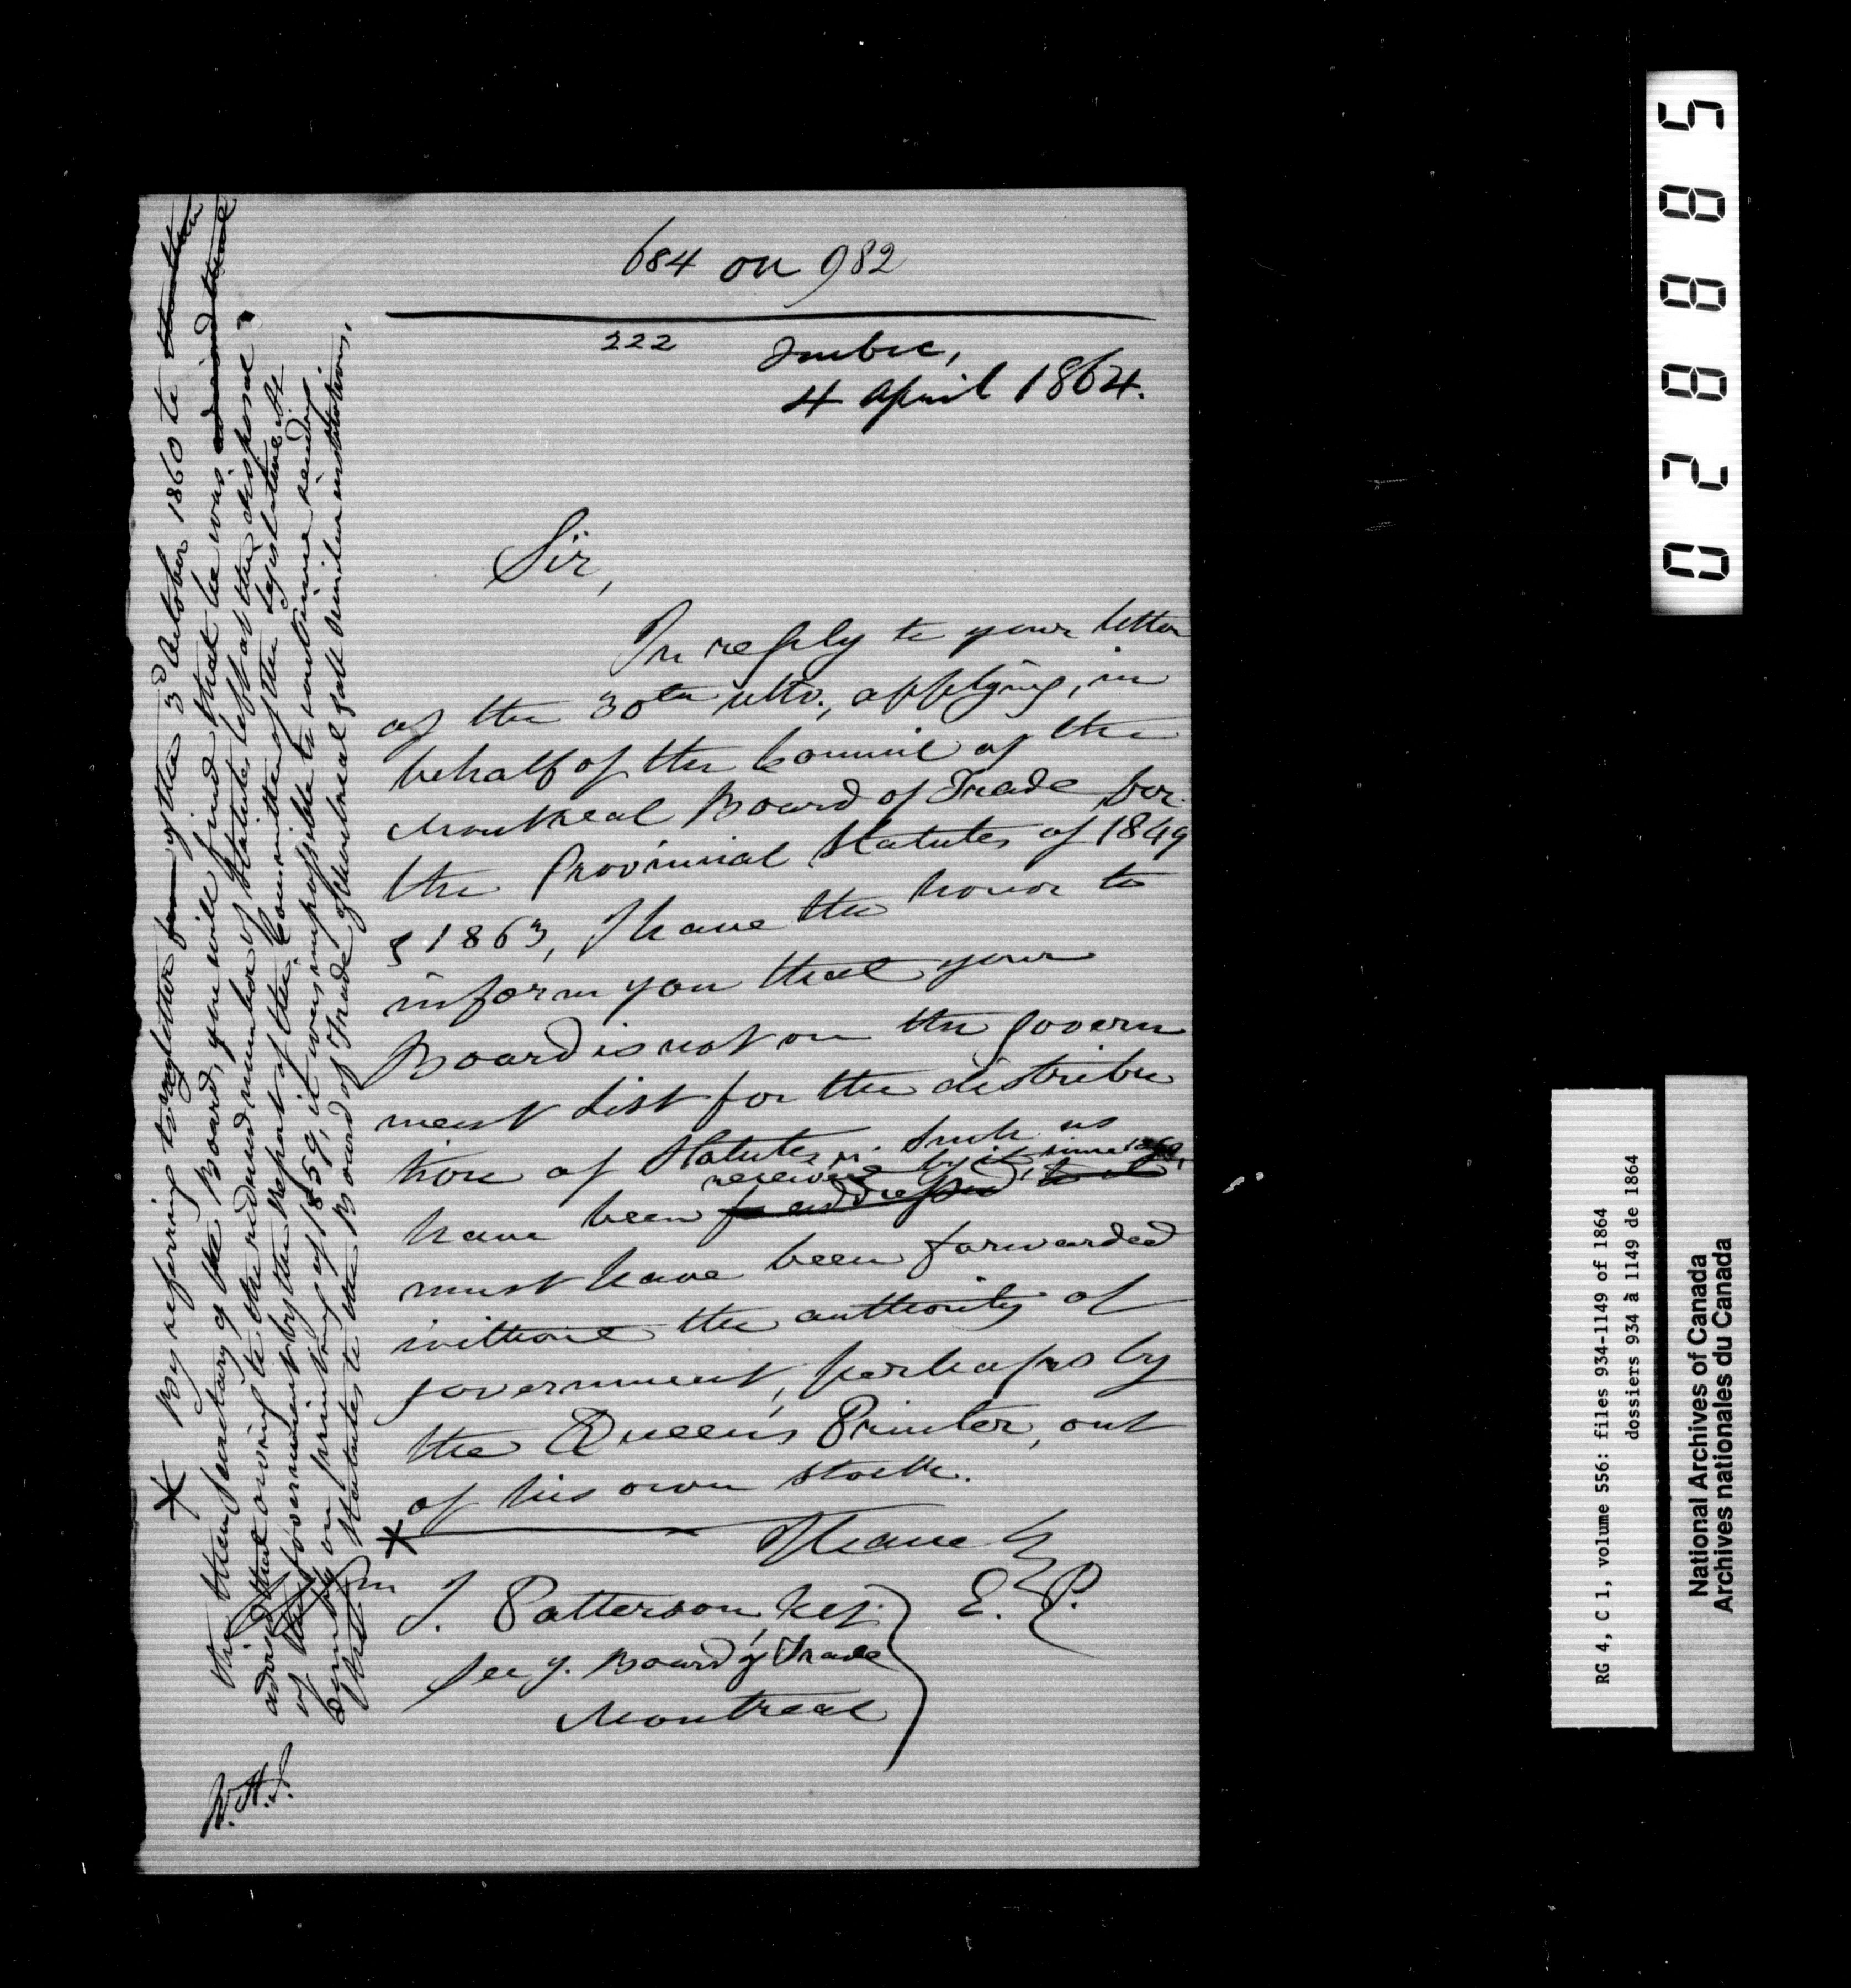 684 on 982
222
Quebec,
4 April 1864.
Sir,
In reply to your letter
of the 30th ulto., applying, in
behalf of the Council of the
Montreal Board of Trade for
the Provincial Statutes of 1849
& 1863, I have the honor to
inform you that your
Board is not on the Govern
ment List for the distribu
tion of Statutes. Such as
received by it since 1859,
have been addressed to it
must have been forwarded
without the authority of
Government, perhaps by
the Queen's Printer, out
of his own stock.
* I have &
E. P.
J. Patterson, Esq.
Secy. Board of Trade
Montreal
* By referring to my letter of the 3d October 1860 to
the then Secretary of the Board, you will find that he was
advised that owing to the reduced number of Statutes left at the disposal
of the Government by the Report of the Committee of the Legislature
on printing of 1859, it was impossible to continue sending
the Statutes to the Board of Trade of Montreal & all similar institutions.
W.H.J.
028885
RG 4, C 1, volume 556: files 934-1149 of 1864
dossiers 934 à 1149 de 1864
National Archives of Canada
Archives nationales du Canada